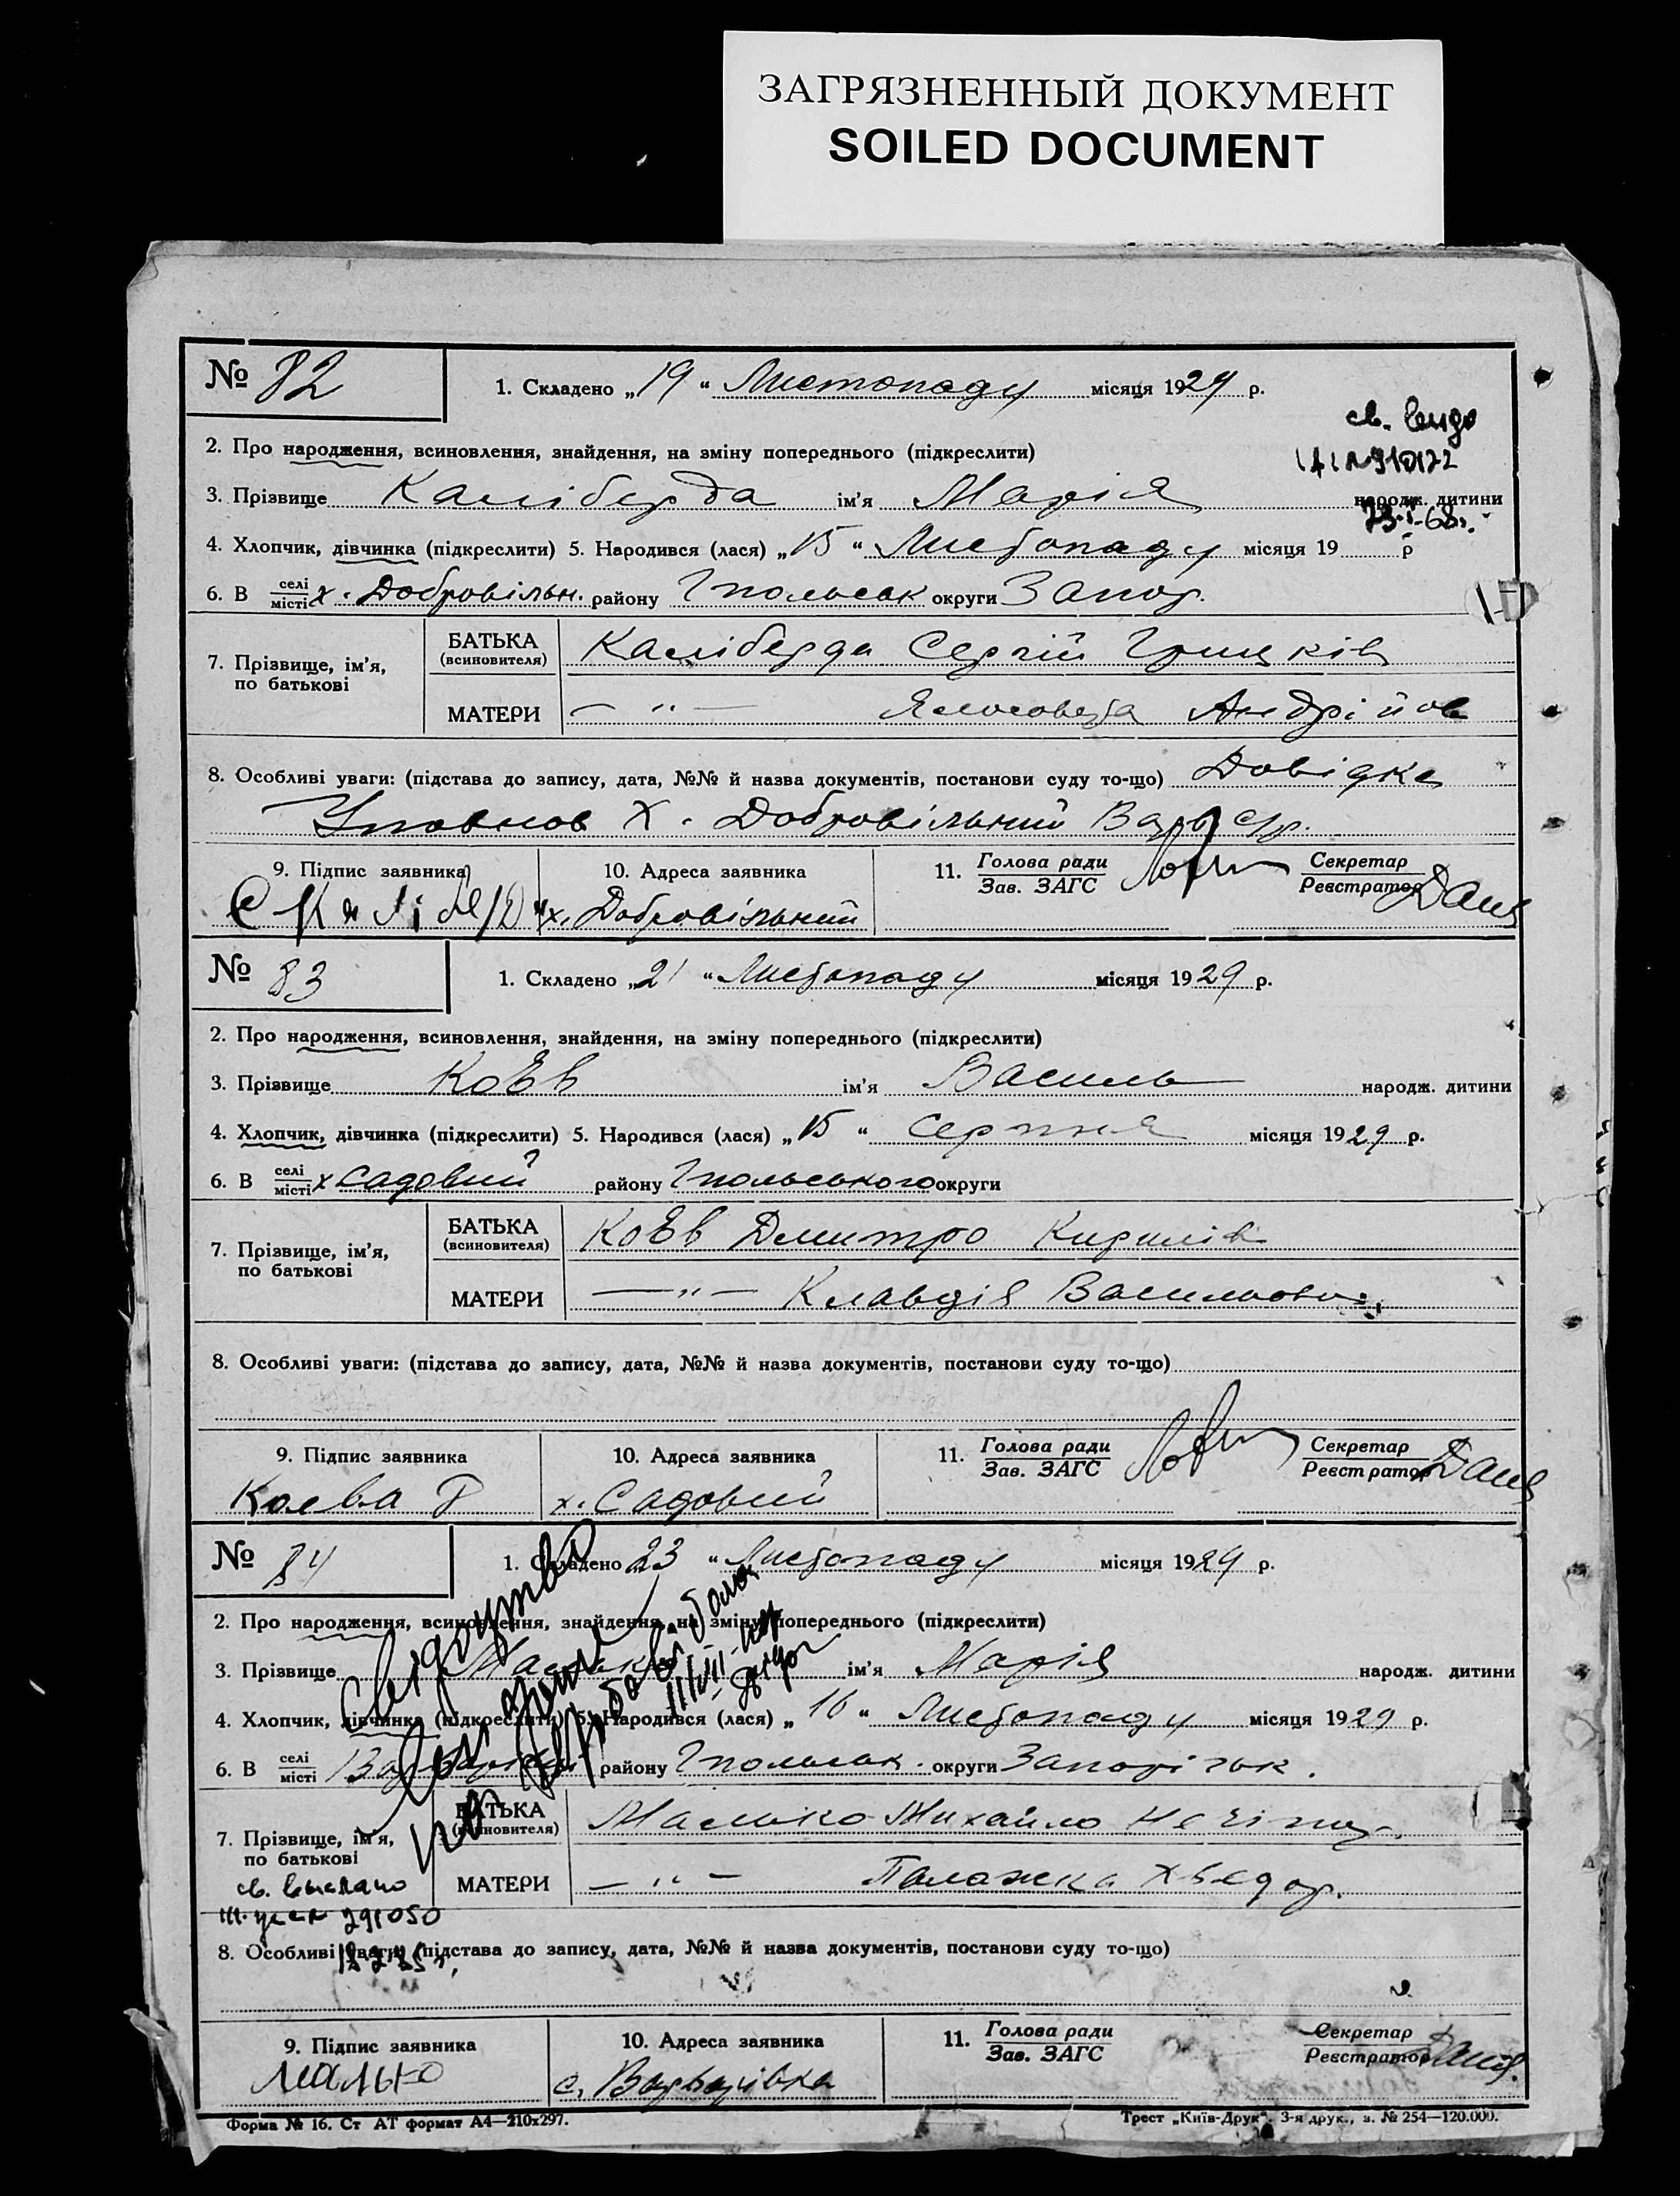 ЗАГРЯЗНЕННЫЙ ДОКУМЕНТ
SOILED DOCUMENT
№ 82
1. Складено „19“ Листопаду місяця 1929 р.
2. Про народження, всиновлення, знайдення, на зміну попереднього (підкреслити)
3. Прізвище Каліберда ім'я Марія народж. дитини
4. Хлопчик, дівчинка (підкреслити) 5. Народився (лася) „15“ Листопаду місяця 19 р
6. В селі місті х. Добровільн. району Гпольськ округи Запор.
7. Прізвище, ім'я, по батькові
БАТЬКА (всиновителя) Каліберда Сергій Грицків
МАТЕРИ — „ — Андрійов
8. Особливі уваги: (підстава до запису, дата, №№ й назва документів, постанови суду то-що) Довідка
Уповнов х. Добровільний
9. Підпис заявника
10. Адреса заявника х. Добровільний
11. Голова ради Зав. ЗАГС
Секретар Реєстратор
№ 83
1. Складено „21“ Листопаду місяця 1929 р.
2. Про народження, всиновлення, знайдення, на зміну попереднього (підкреслити)
3. Прізвище КоЕв ім'я Василь народж. дитини
4. Хлопчик, дівчинка (підкреслити) 5. Народився (лася) „15“ Серпня місяця 1929 р.
6. В селі місті х Садовий району Гпольського округи
7. Прізвище, ім'я, по батькові
БАТЬКА (всиновителя) КоЕв Дмитро Кирилів
МАТЕРИ — „ — Клавдія Васильовн.
8. Особливі уваги: (підстава до запису, дата, №№ й назва документів, постанови суду то-що)
9. Підпис заявника Коева
10. Адреса заявника х. Садовий
11. Голова ради Зав. ЗАГС
Секретар Реєстратор
№ 84
1. Складено 23 “ Листопаду місяця 1929 р.
2. Про народження, всиновлення, знайдення, на зміну попереднього (підкреслити)
3. Прізвище Малько ім'я Марія народж. дитини
4. Хлопчик, дівчинка (підкреслити) 5. Народився (лася) „16“ Листопаду місяця 1929 р.
6. В селі місті району Гпольськ. округи Запоріжськ.
7. Прізвище, ім'я, по батькові
БАТЬКА (всиновителя) Малько Михайло Нечипор.
МАТЕРИ — „ — Палажка Хведор.
8. Особливі уваги: (підстава до запису, дата, №№ й назва документів, постанови суду то-що)
9. Підпис заявника Малько
10. Адреса заявника с. Варварівка
11. Голова ради Зав. ЗАГС
Секретар Реєстратор
Форма № 16. Ст АТ формат А4—210х297.
Трест „Київ-Друк“. 3-я друк., з. № 254—120.000.